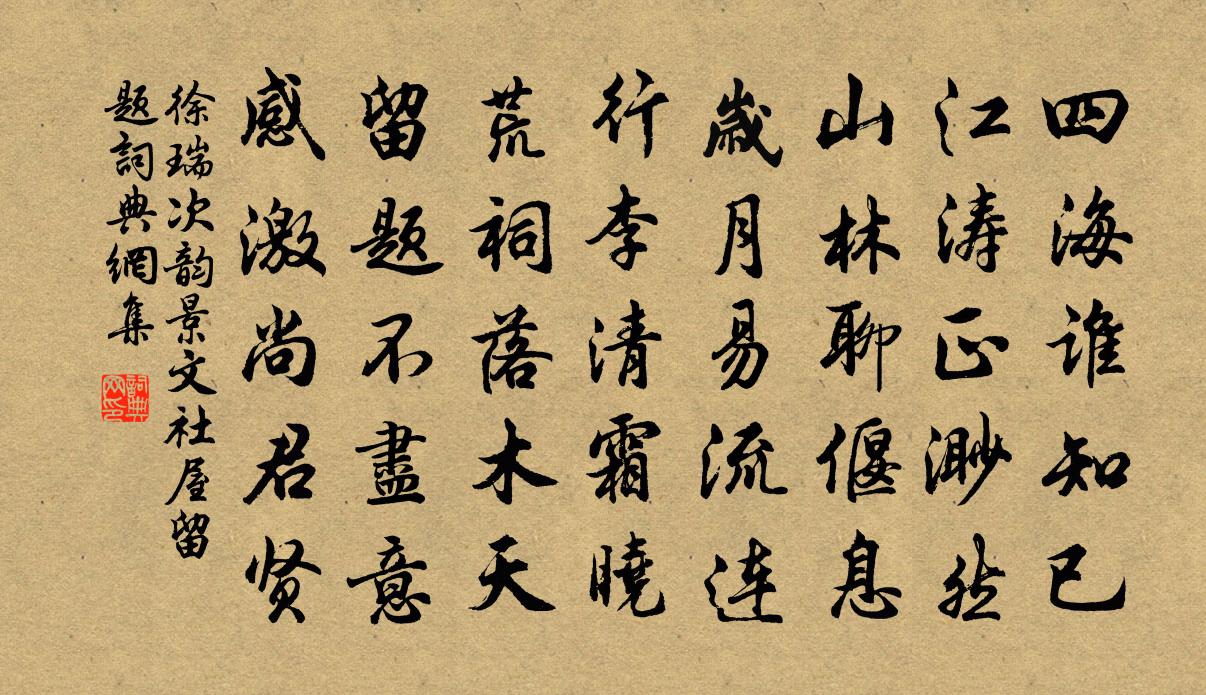 四海谁知已
江涛正渺然
山林聊偃息
歳月易流连
行李清霜曉
荒祠落木天
留题不盡意
感激尚君贤
徐瑞次韵景文社屋留
题詞典網集
詞典
网印